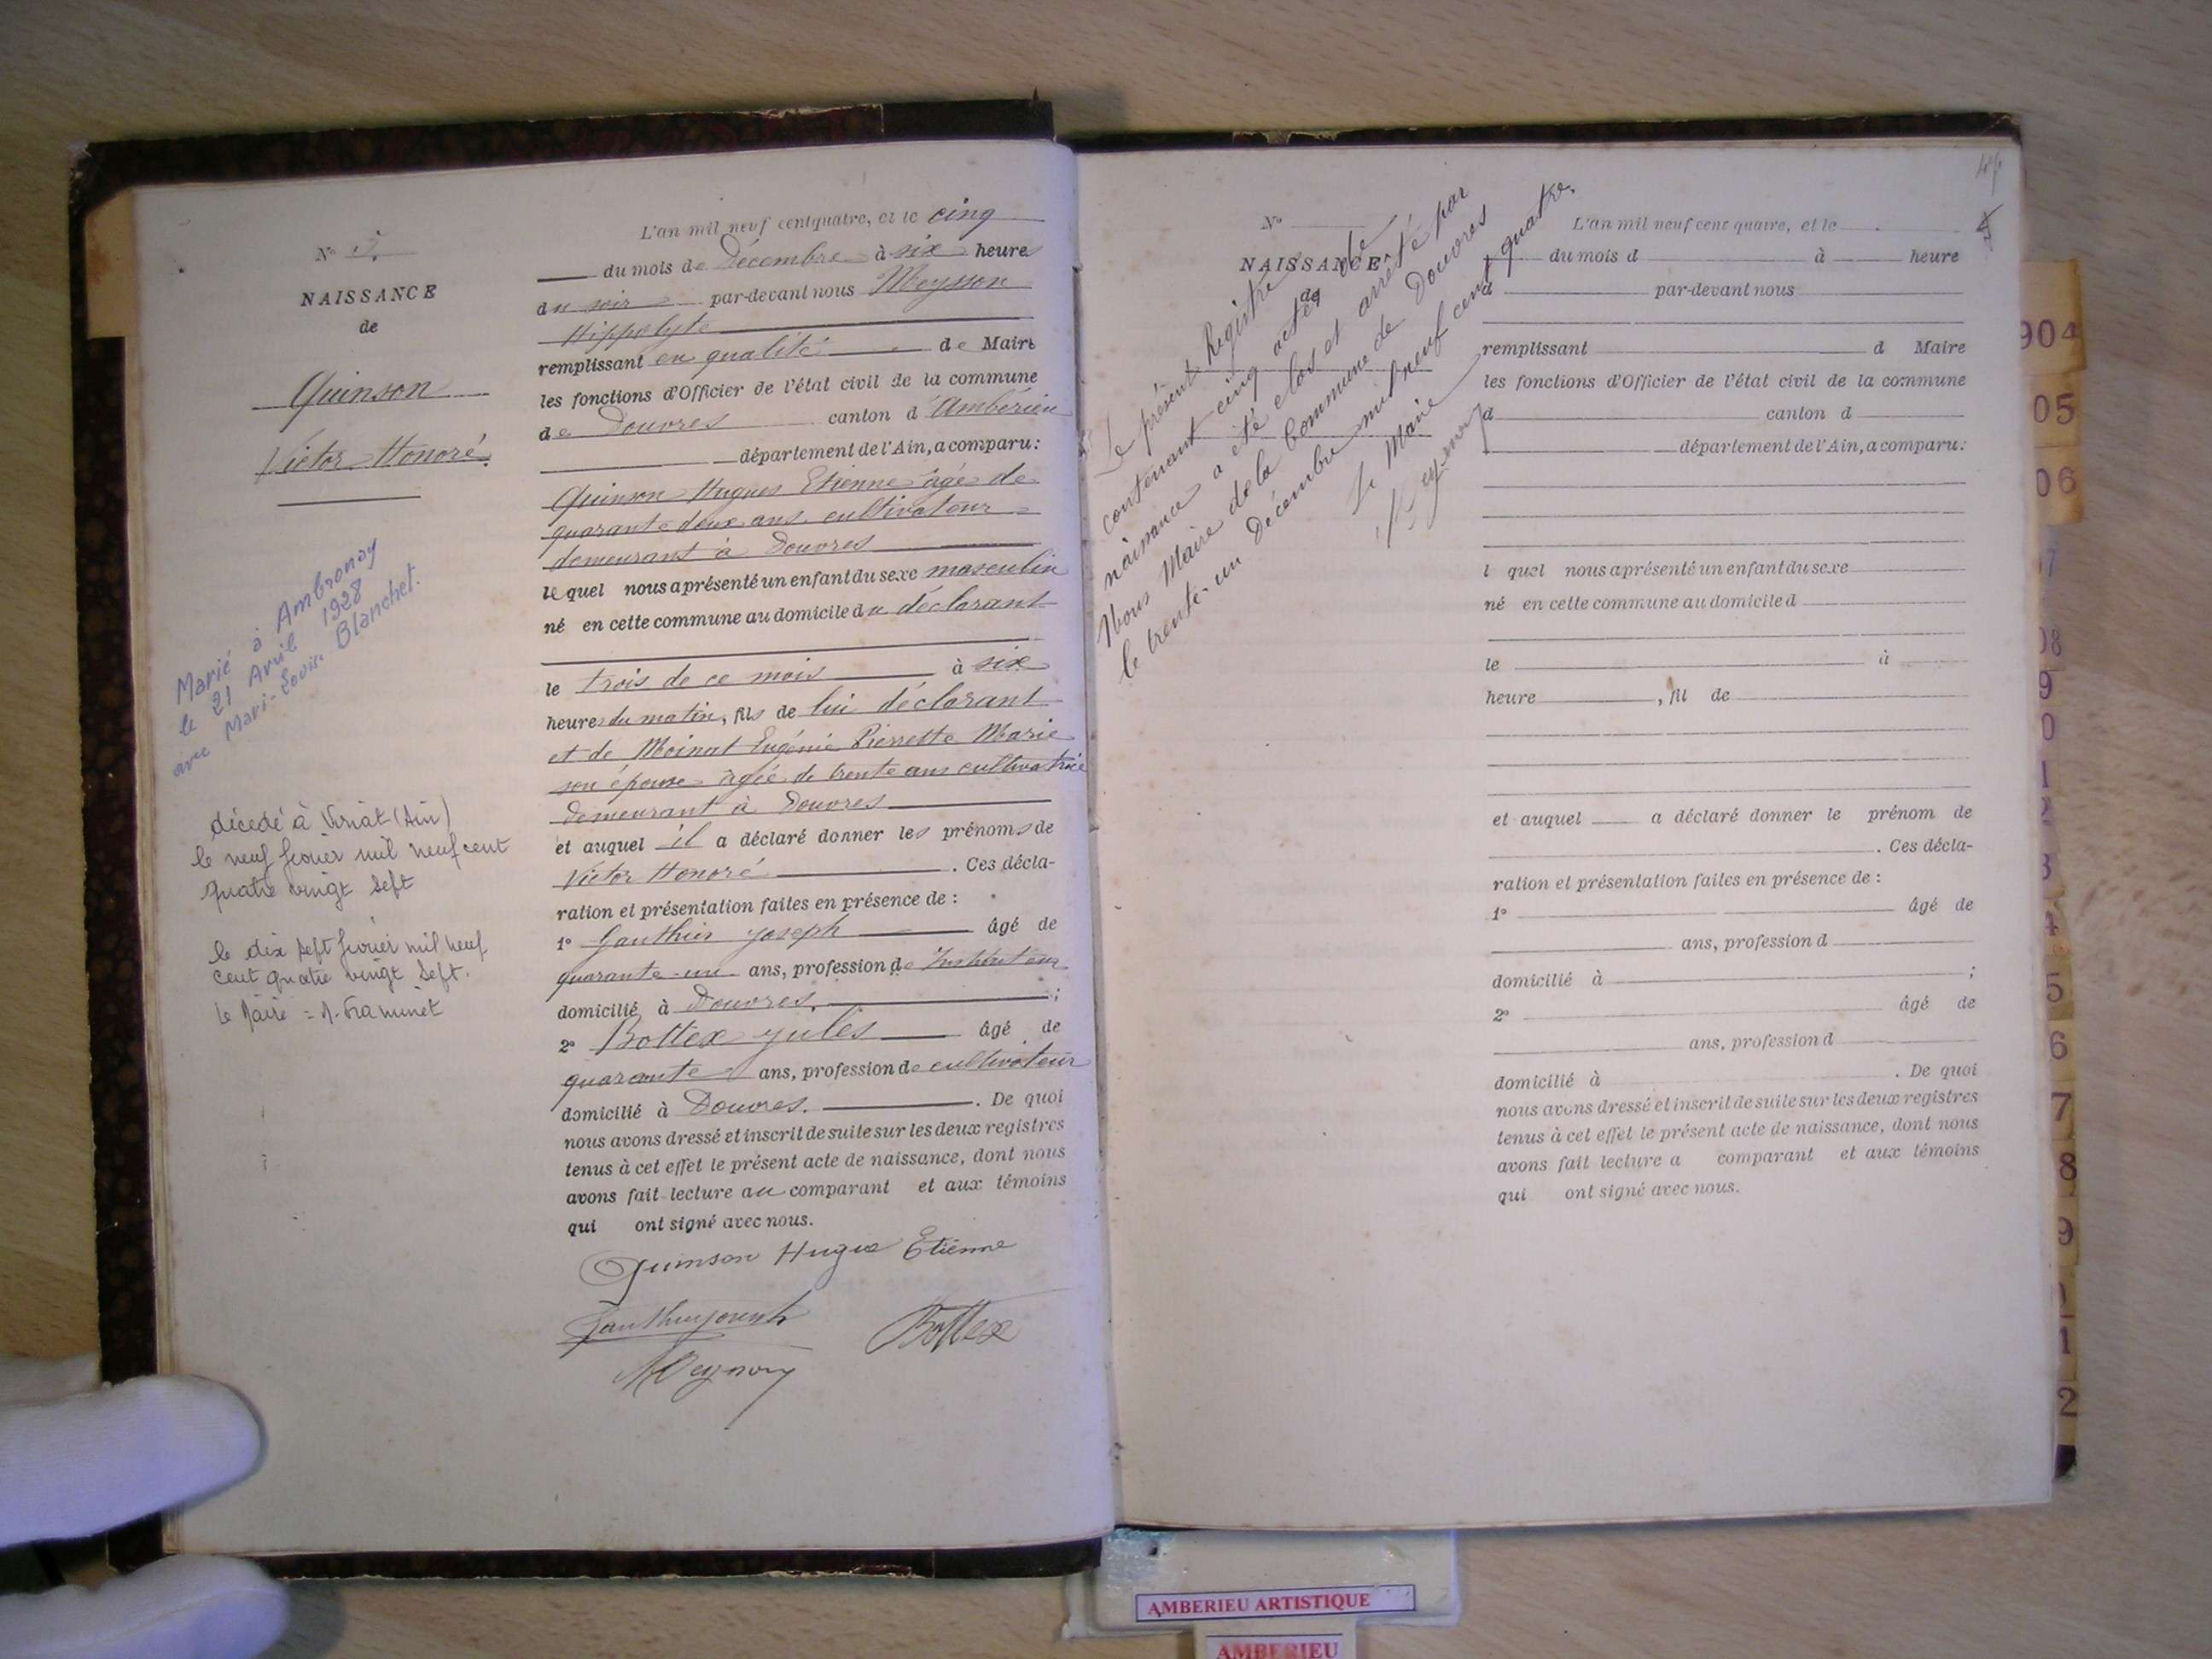 N° 5.
NAISSANCE
de
Quinson
Victor Honoré.
Marié à Ambronay
le 21 Avril 1928
avec Mari-Louise Blanchet.
décedé à Viriat (Ain)
le neuf février mil neuf cent
quatre vingt sept
le dix sept février mil neuf
cent quatre vingt sept.
le Maire =
L'an mil neuf cent quatre, et le cinq
du mois de Décembre à six heures
du soir par-devant nous Meysson
Hippolyte
remplissant en qualité de Maire
les fonctions d'Officier de l'état civil de la commune
de Douvres canton d'Ambérieu
département de l'Ain, a comparu:
Quinson Hugues Etienne âgé de
quarante deux ans cultivateur
demeurant à Douvres
lequel nous a présenté un enfant du sexe masculin
né en cette commune au domicile du déclarant
le trois de ce mois à six
heures du matin, fils de lui déclarant
et de Moinat Eugénie Pierrette Marie
son épouse âgée de trente ans cultivatrice
demeurant à Douvres
et auquel il a déclaré donner les prénoms de
Victor Honoré. Ces décla-
ration et présentation faites en présence de :
1° Gauthier Joseph âgé de
quarante-un ans, profession de Instituteur
domicilié à Douvres, ;
2° Bottex Jules âgé de
quarante ans, profession de cultivateur
domicilié à Douvres. . De quoi
nous avons dressé et inscrit de suite sur les deux registres
tenus à cet effet le présent acte de naissance, dont nous
avons fait lecture au comparant et aux témoins
qui ont signé avec nous.
Quinson Hugues Etienne
Gauthier Joseph
Bottex
Meysson
N°
NAISSANCE
de
Le présent Registre
contenant cinq actes de
naissance a été clos et arrêté par
Nous Maire de la Commune de Douvres
le trente-un Décembre mil neuf cent quatre.
Le Maire
Meysson
L'an mil neuf cent quatre, et le
du mois d à heure
d par-devant nous
remplissant d Maire
les fonctions d'Officier de l'état civil de la commune
d canton d
département de l'Ain, a comparu:
l quel nous a présenté un enfant du sexe
né en cette commune au domicile d
le à
heure , fil de
et auquel a déclaré donner le prénom de
. Ces décla-
ration et présentation faites en présence de :
1° âgé de
ans, profession d
domicilié à ;
2° âgé de
ans, profession d
domicilié à . De quoi
nous avons dressé et inscrit de suite sur les deux registres
tenus à cet effet le présent acte de naissance, dont nous
avons fait lecture a comparant et aux témoins
qui ont signé avec nous.
904
05
06
7
08
9
0
1
2
3
4
5
6
7
8
9
1
2
AMBERIEU ARTISTIQUE
AMBERIEU